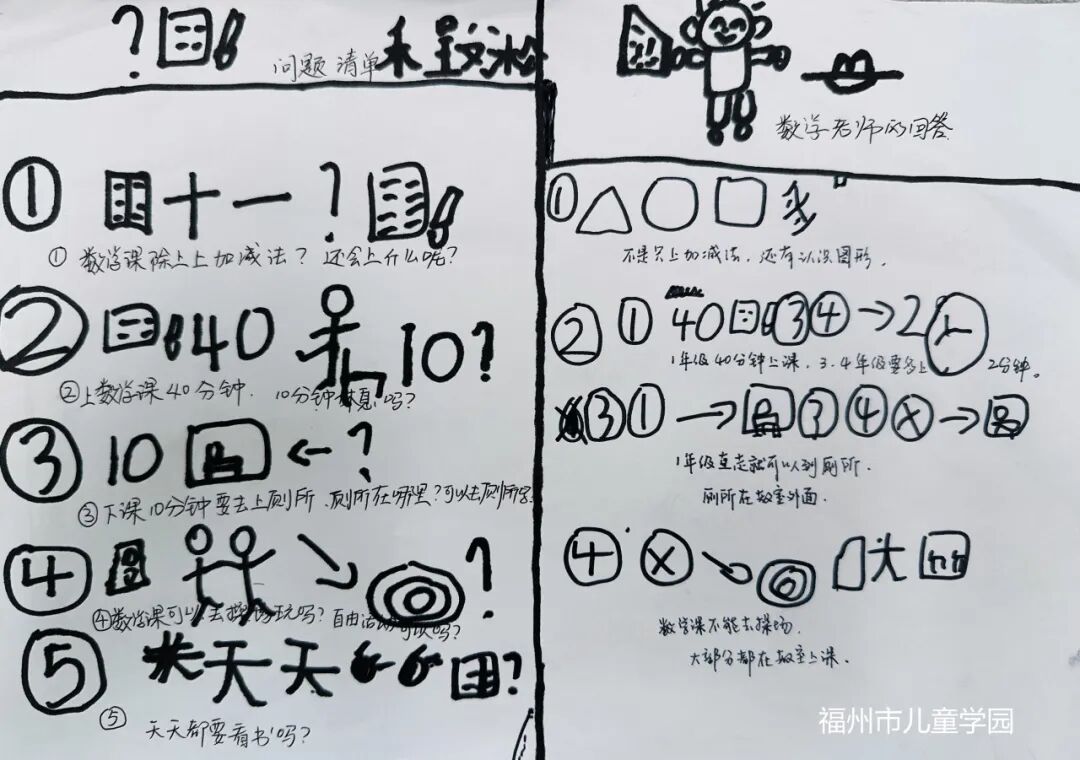 ? 问题清单
① 十 一 ?
① 数学课除上上加减法? 还会上什么呢?
② 40 10?
②上数学课40分钟. 10分钟休息吗?
③ 10 ← ?
③下课10分钟要去上厕所.厕所在哪里?可以去厕所吗
④ ?
④数学课可以去操场玩吗?自由活动可以吗?
⑤ 天天 ?
⑤ 天天都要看书吗?
数学老师的回答
①
不是只上加减法,还有认识图形.
② ① 40 ③④→2
1年级40分钟上课.3.4年级要多上 2分钟。
③① → ③④ⓧ →
1年级直走就可以到厕所.
厕所在教室外面.
④ ⓧ 大
数学课不能去操场.
大部分都在教室上课.
福州市儿童学园